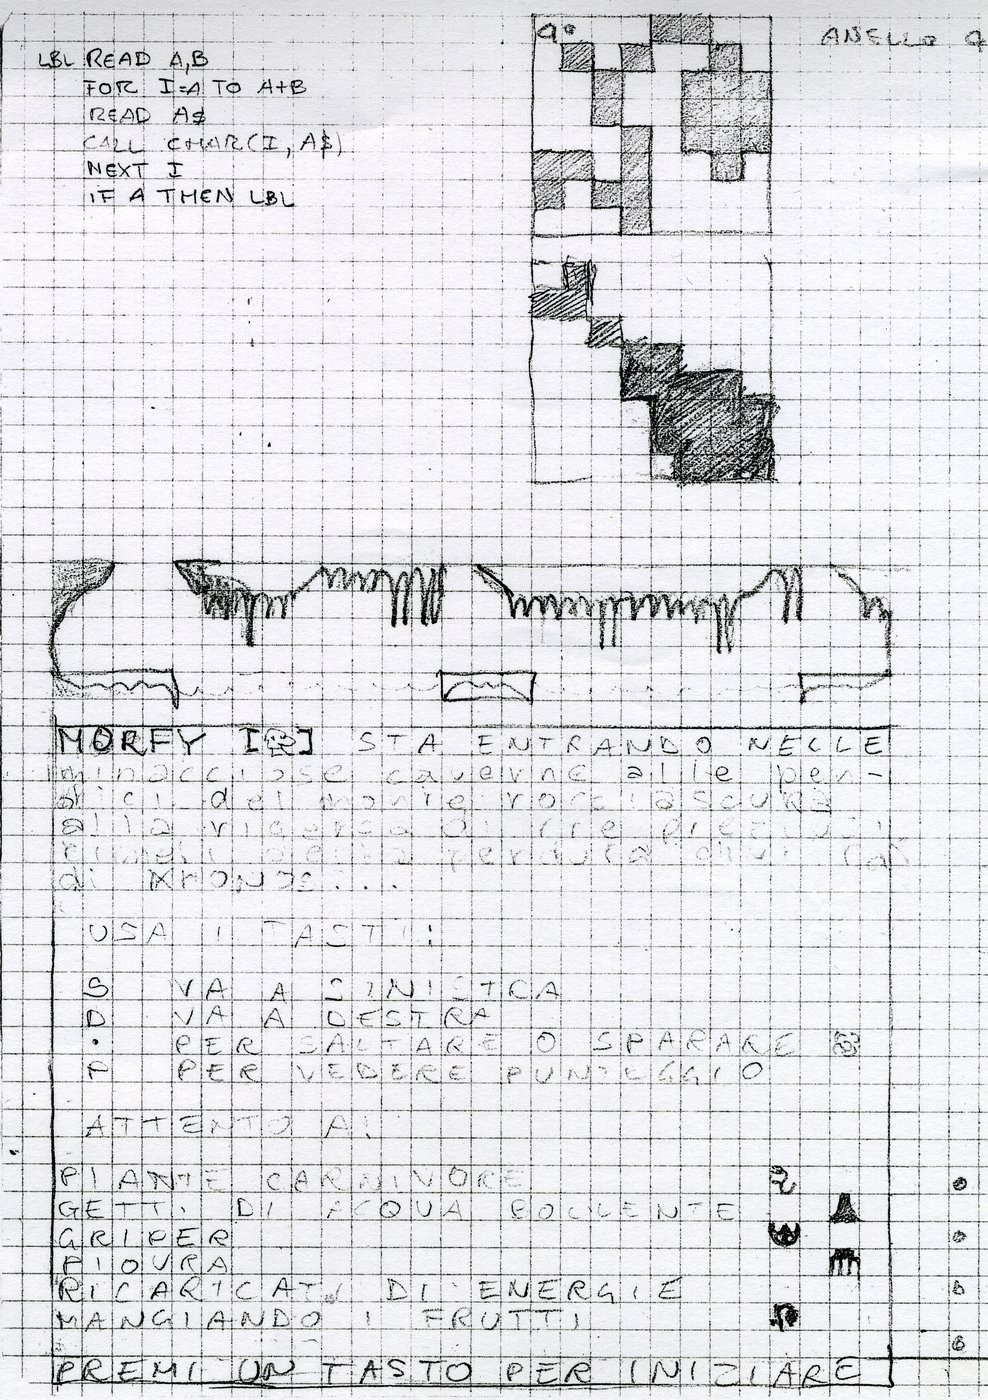 LBL READ A,B
FOR I=A TO A+B
READ A$
CALL CHAR(I, A$)
NEXT I
IF A THEN LBL
ANELLO
MORFY [ ] STA ENTRANDO NELLE
minacciose caverne alle pen-
dici del monte rocciascura
alla ricerca di tre preziosi
di KRONOS...
USA I TASTI:
S VA A SINISTRA
D VA A DESTRA
. PER SALTARE O SPARARE
P PER VEDERE PUNTEGGIO
ATTENTO A:
PIANTE CARNIVORE
GETTI DI ACQUA BOLLENTE
GRIPER
PIOVRA
RICARICATI DI ENERGIE
MANGIANDO I FRUTTI
PREMI UN TASTO PER INIZIARE